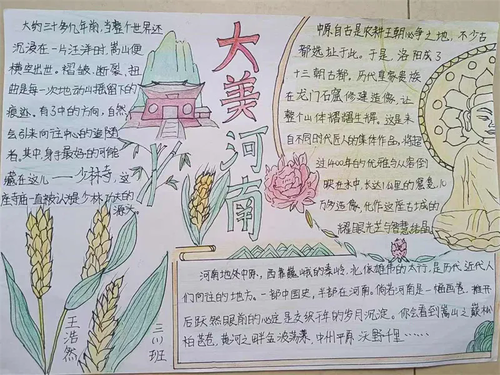 大美河南
大约三十多亿年前,当整个世界还
沉浸在一片汪洋时,嵩山便
横空出世。褶皱,断裂,扭
曲是每一次地动山摇留下的
痕迹,有了中的方向,自然
会引来向往中心的追随
者,其中,身手最好的可能
藏在这儿——少林寺,这
座寺庙一直被认为少林功夫的
源头
中原自古是农耕王朝必争之地,不少古
都选址于此。于是,洛阳成了
十三朝古都,历代皇家贵族
在龙门石窟修建造像,让
整个山体熠熠生辉,这是来
自不同时代匠人的集体作品,将超
过400年的优雅与从容倒
映在水中,长达1公里的窟龛,几
万多造像,化作这座古城的
耀眼光芒与智慧结晶
河南地处中原,西靠巍峨的秦岭,北依雄伟的太行,是历代近代人
们向往的地方。一部中国史,半部在河南。倘若河南是一桶画卷,推开
后跃然眼前的必定是文明千年的岁月沉淀。你会看到嵩山之巅松
柏苍苍,黄河之畔金波荡漾,中州平原沃野千里……
王浩然
三(1)班